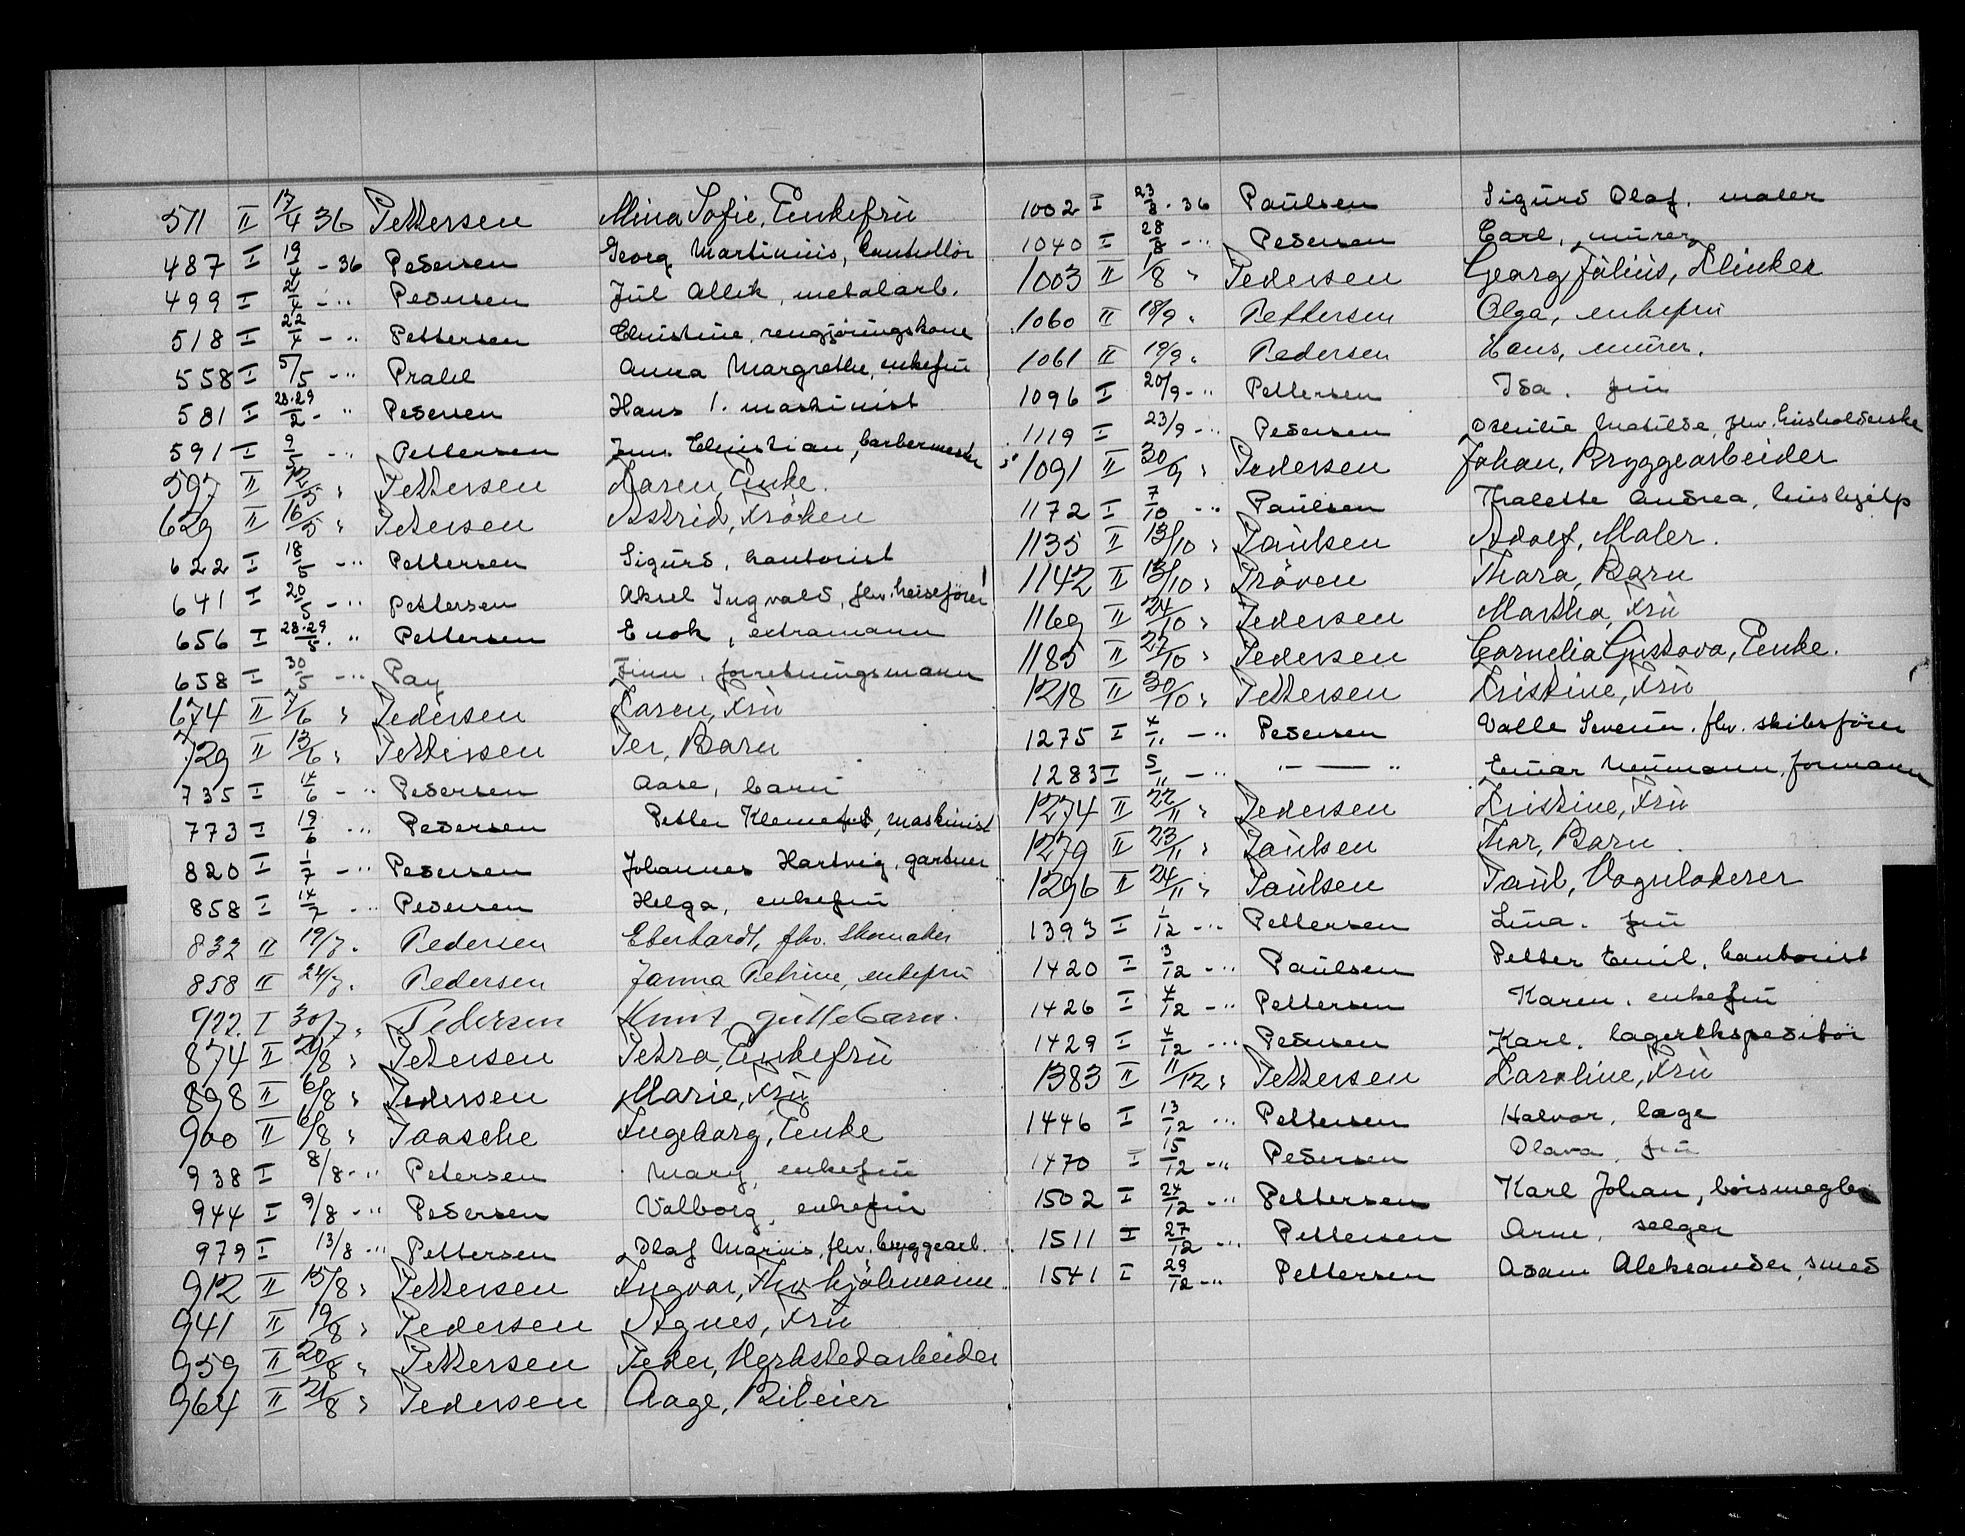 511 II 17/4 36 Pettersen Mina Sofie, Enkefrü
487 I 19/4 - 36 Pedersen Georg Martinius, kontrollör
499 I 21/4 - " Pedersen Jul Allik, metalarb.
518 I 22/4 - " Pettersen Christine, rengjøringskone
558 I 5/5 - " Prahl Anna Margrethe, enkefrü
581 I 28-29/2 - " Pedersen Hans 1. maskinist
591 I 9/5 - " Pettersen Jens Christian, barbermester
597 II 12/5 " Pettersen Karen, Enke.
629 II 16/5 " Petersen Astrid, Fröken
622 I 18/5 - " Pettersen Sigurd, kontorist
641 I 20/5 - " Pettersen Aksel Ingvald, fhv. heisefører
656 I 28-29/5 " Pettersen Enok, extramann
658 I 30/5 - " Pay Finn, forretningsmann
674 II 7/6 " Pedersen Karen, Frü
729 II 13/6 " Pettersen Per, Barn
735 I 14/6 - " Pedersen Aase, barn
773 I 19/6 - " Pedersen Petter, maskinist
820 I 1/7 - " Pedersen Johannes Hartvig, gartner
858 I 14/7 - " Pedersen Helga, enkefrü
832 II 19/7 " Pedersen Eberhardt, fhv. skomaker
858 II 24/7 " Pedersen Janna Petrine, enkefrü
922. I 30/7 " Pedersen Knut, guttebarn.
874 II 2/8 " Petersen Petra, Enkefrü
898 II 6/8 " Pedersen Marie, Frü
900 II 6/8 " Paasche Ingeborg, Enke
938 I 8/8 - " Petersen Mary, enkefrü
944 I 9/8 - " Pedersen Valborg, enkefrü
979 I 13/8 - " Pettersen Olaf Marius, fhv. bryggearb.
912 II 15/8 " Pettersen Ingvar, Fhv. kjöbmann
941 II 19/8 " Pedersen Agnes, Frü
959 II 20/8 " Pettersen Peder, Verkstedarbeider
964 II 21/8 " Pedersen Aage, Bileier
1002 I 23/8 - 36 Paulsen Sigurd Olaf, maler
1040 I 28/8 - " Pedersen Carl, murer
1003 II 1/8 " Pedersen Georg Julius, Klinker
1060 II 18/9 " Pettersen Olga, enkefrü
1061 II 19/9 " Pedersen Hans, murer.
1096 I 20/9 - " Pettersen Ida. frü
1119 I 23/9 - " Pedersen Othilie Matilde, fhv. husholderske
1091 II 30/9 " Pedersen Johan, Bryggearbeider
1172 I 7/10 - " Paulsen Thalette Andrea, hushjelp
1135 II 13/10 " Paulsen Adolf, Maler.
1142 II 15/10 " Pröven Thora, Barn
1169 II 24/10 " Pedersen Martha, Frü
1185 II 27/10 " Pedersen Cornelia Gustava, Enke.
1218 II 30/10 " Pettersen Kristine, Frü
1275 I 4/11 - " Pedersen Valle Severin. fhv. skibsfører
1283 I 5/11 - " " — — " Einar Neumann, formann
1274 II 22/11 " Pedersen Kristine, Frü
1279 II 23/11 " Paulsen Thor, Barn
1296 II 24/11 " Paulsen Paul, Vognlakerer
1393 I 1/12 - " Pettersen Lina. frü
1420 I 3/12 - " Paulsen Petter Emil, kontorist
1426 I 4/12 - " Pettersen Karen. enkefrü
1429 I 4/12 - " Pedersen Karl. lagerekspeditör
1383 II 11/12 " Pettersen Karoline, Frü
1446 I 13/12 - " Pettersen Halvor, læge
1470 I 15/12 - " Pedersen Olava, frü
1502 I 24/12 - " Pettersen Karl Johan, börsmegler
1511 I 27/12 - " Pettersen Arne, selger
1541 I 29/12 - " Pettersen Adam Aleksander, smed